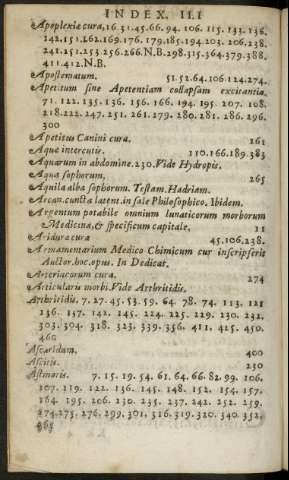 INDEX. III
Apoplexiæ cura, 16. 31. 45. 66. 94. 106. 115. 133. 136.
142. 151. 162. 169. 176. 179. 185. 194. 203. 206. 238.
241. 251. 253. 256. 266. N.B. 298. 315. 364. 379. 388.
411. 412. N.B.
Apostematum. 51. 52. 64. 106. 124. 274.
Apetitum sine Apetentiam collapsam excitantia.
71. 122. 135. 136. 156. 166. 194. 195. 207. 108.
218. 222. 247. 251. 261. 279. 280. 281. 286. 296.
300
Apetitus Canini cura. 261
Aque intercutis. 110. 166. 189. 383
Aquarum in abdomine. 230. Vide Hydropis.
Aqua sophorum, 265
Aquila alba sophorum. Testam. Hadriam.
Arcan. cuncta latent. in sale Philosophico. Ibidem.
Argentum potabile omnium lunaticorum morborum
Medicina, & specificum capitale. 11
Aridura cura 45. 106. 238.
Armamentarium Medico Chimicum cur inscripserit
Auctor. hoc. opus. In Dedicat.
Arteriacorum cura. 274
Articularis morbi. Vide Arthritidis.
Arthritidis. 7. 27. 45. 53. 59. 64. 78. 74. 113. 121
136. 137. 142. 145. 224. 225. 229. 230. 232.
303. 304. 318. 323. 339. 356. 411. 425. 450.
460
Ascaridum. 400
Ascitis. 230
Astmatis. 7. 15. 19. 54. 61. 64. 66. 82. 99. 106.
107. 119. 122. 136. 145. 148. 152. 154. 157.
164. 195. 206. 230. 235. 237. 242. 252. 259.
274. 275. 276. 299. 301. 316. 319. 320. 340. 352.
365